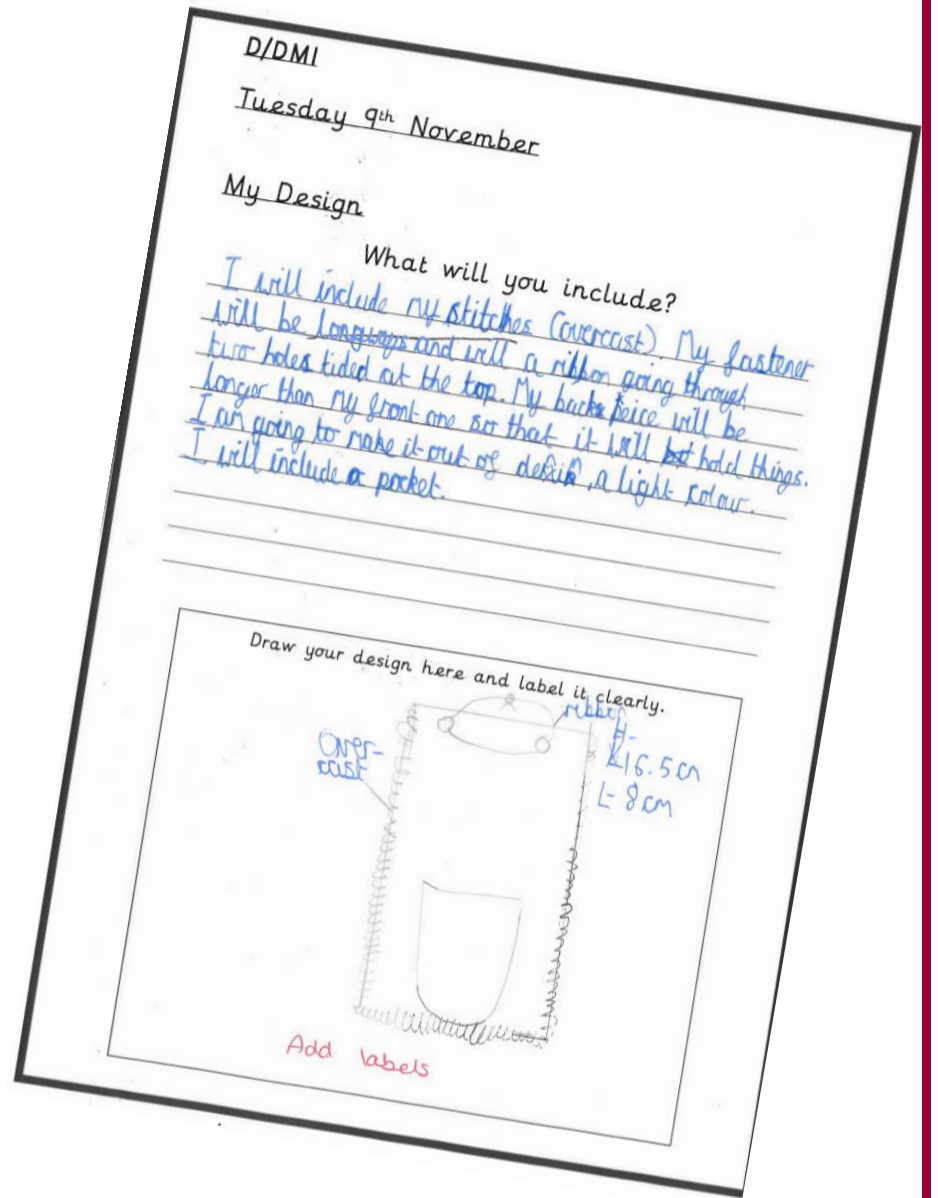 D/DMI
Tuesday 9th November
My Design
What will you include?
I will include my stitches (overcast). My fastener
will be longways and will a ribbon going through
two holes tided at the top. My back peice will be
longer than my front one so that it will hold things.
I am going to make it out of , a light colour.
I will include a pocket.
Draw your design here and label it clearly.
ribbon
Over-
cast
H-
16.5cm
L- 8cm
Add labels